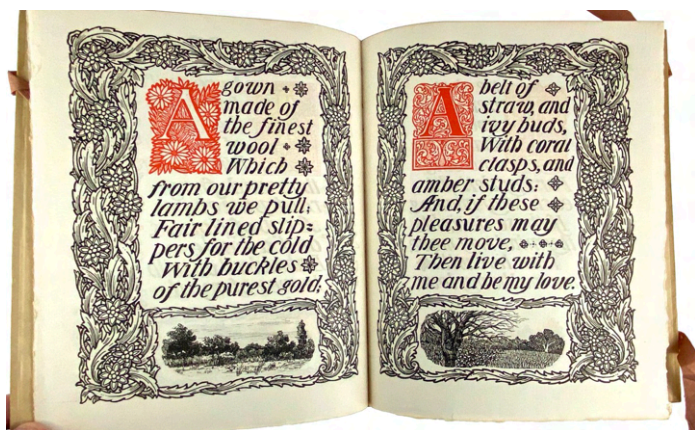 A gown
made of
the finest
wool
Which
from our pretty
lambs we pull;
Fair lined slip=
pers for the cold
With buckles
of the purest gold;
A belt of
straw, and
ivy buds,
With coral
clasps, and
amber studs:
And, if these
pleasures may
thee move,
Then live with
me and be my love.